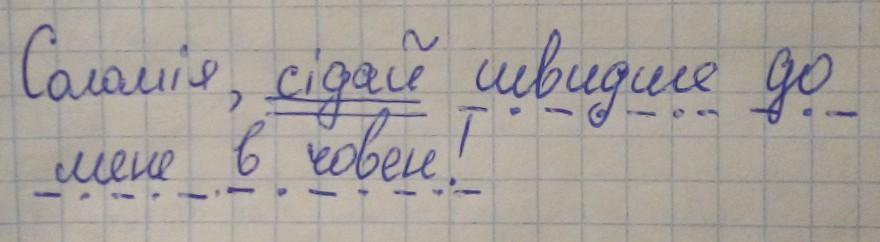 Соломія, сідай швидше до
мене в човен!